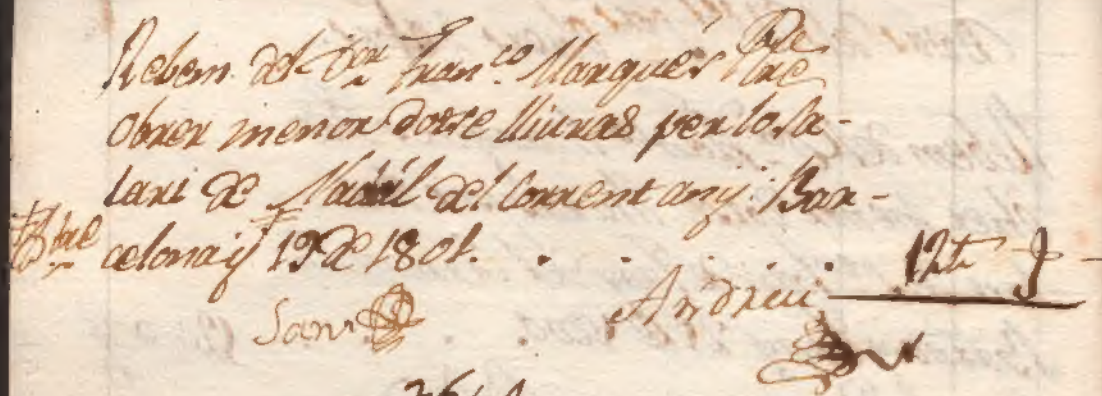 Rebem del Dr. Fran.co Marquès Pbre
Obrer menor dotse lliuras per lo sa-
lari de Nadal del corrent any. Bar-
celona y 19 de 1801. . . . . 12 tt
Andreu